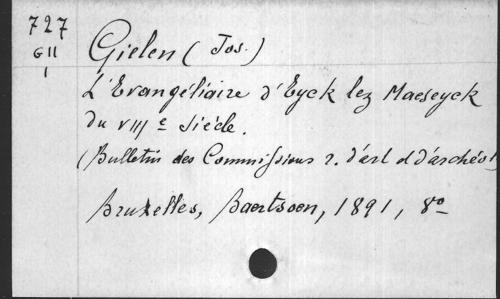 727
G II
1
Gielen (Jos.)
L'Evangéliaire d'Eyck lez Maeseyck
du VIIIe Siècle.
(Bulletin des Commissions r. d'art et d'archéol)
Bruxelles, Baertsoen, 1891, 8o